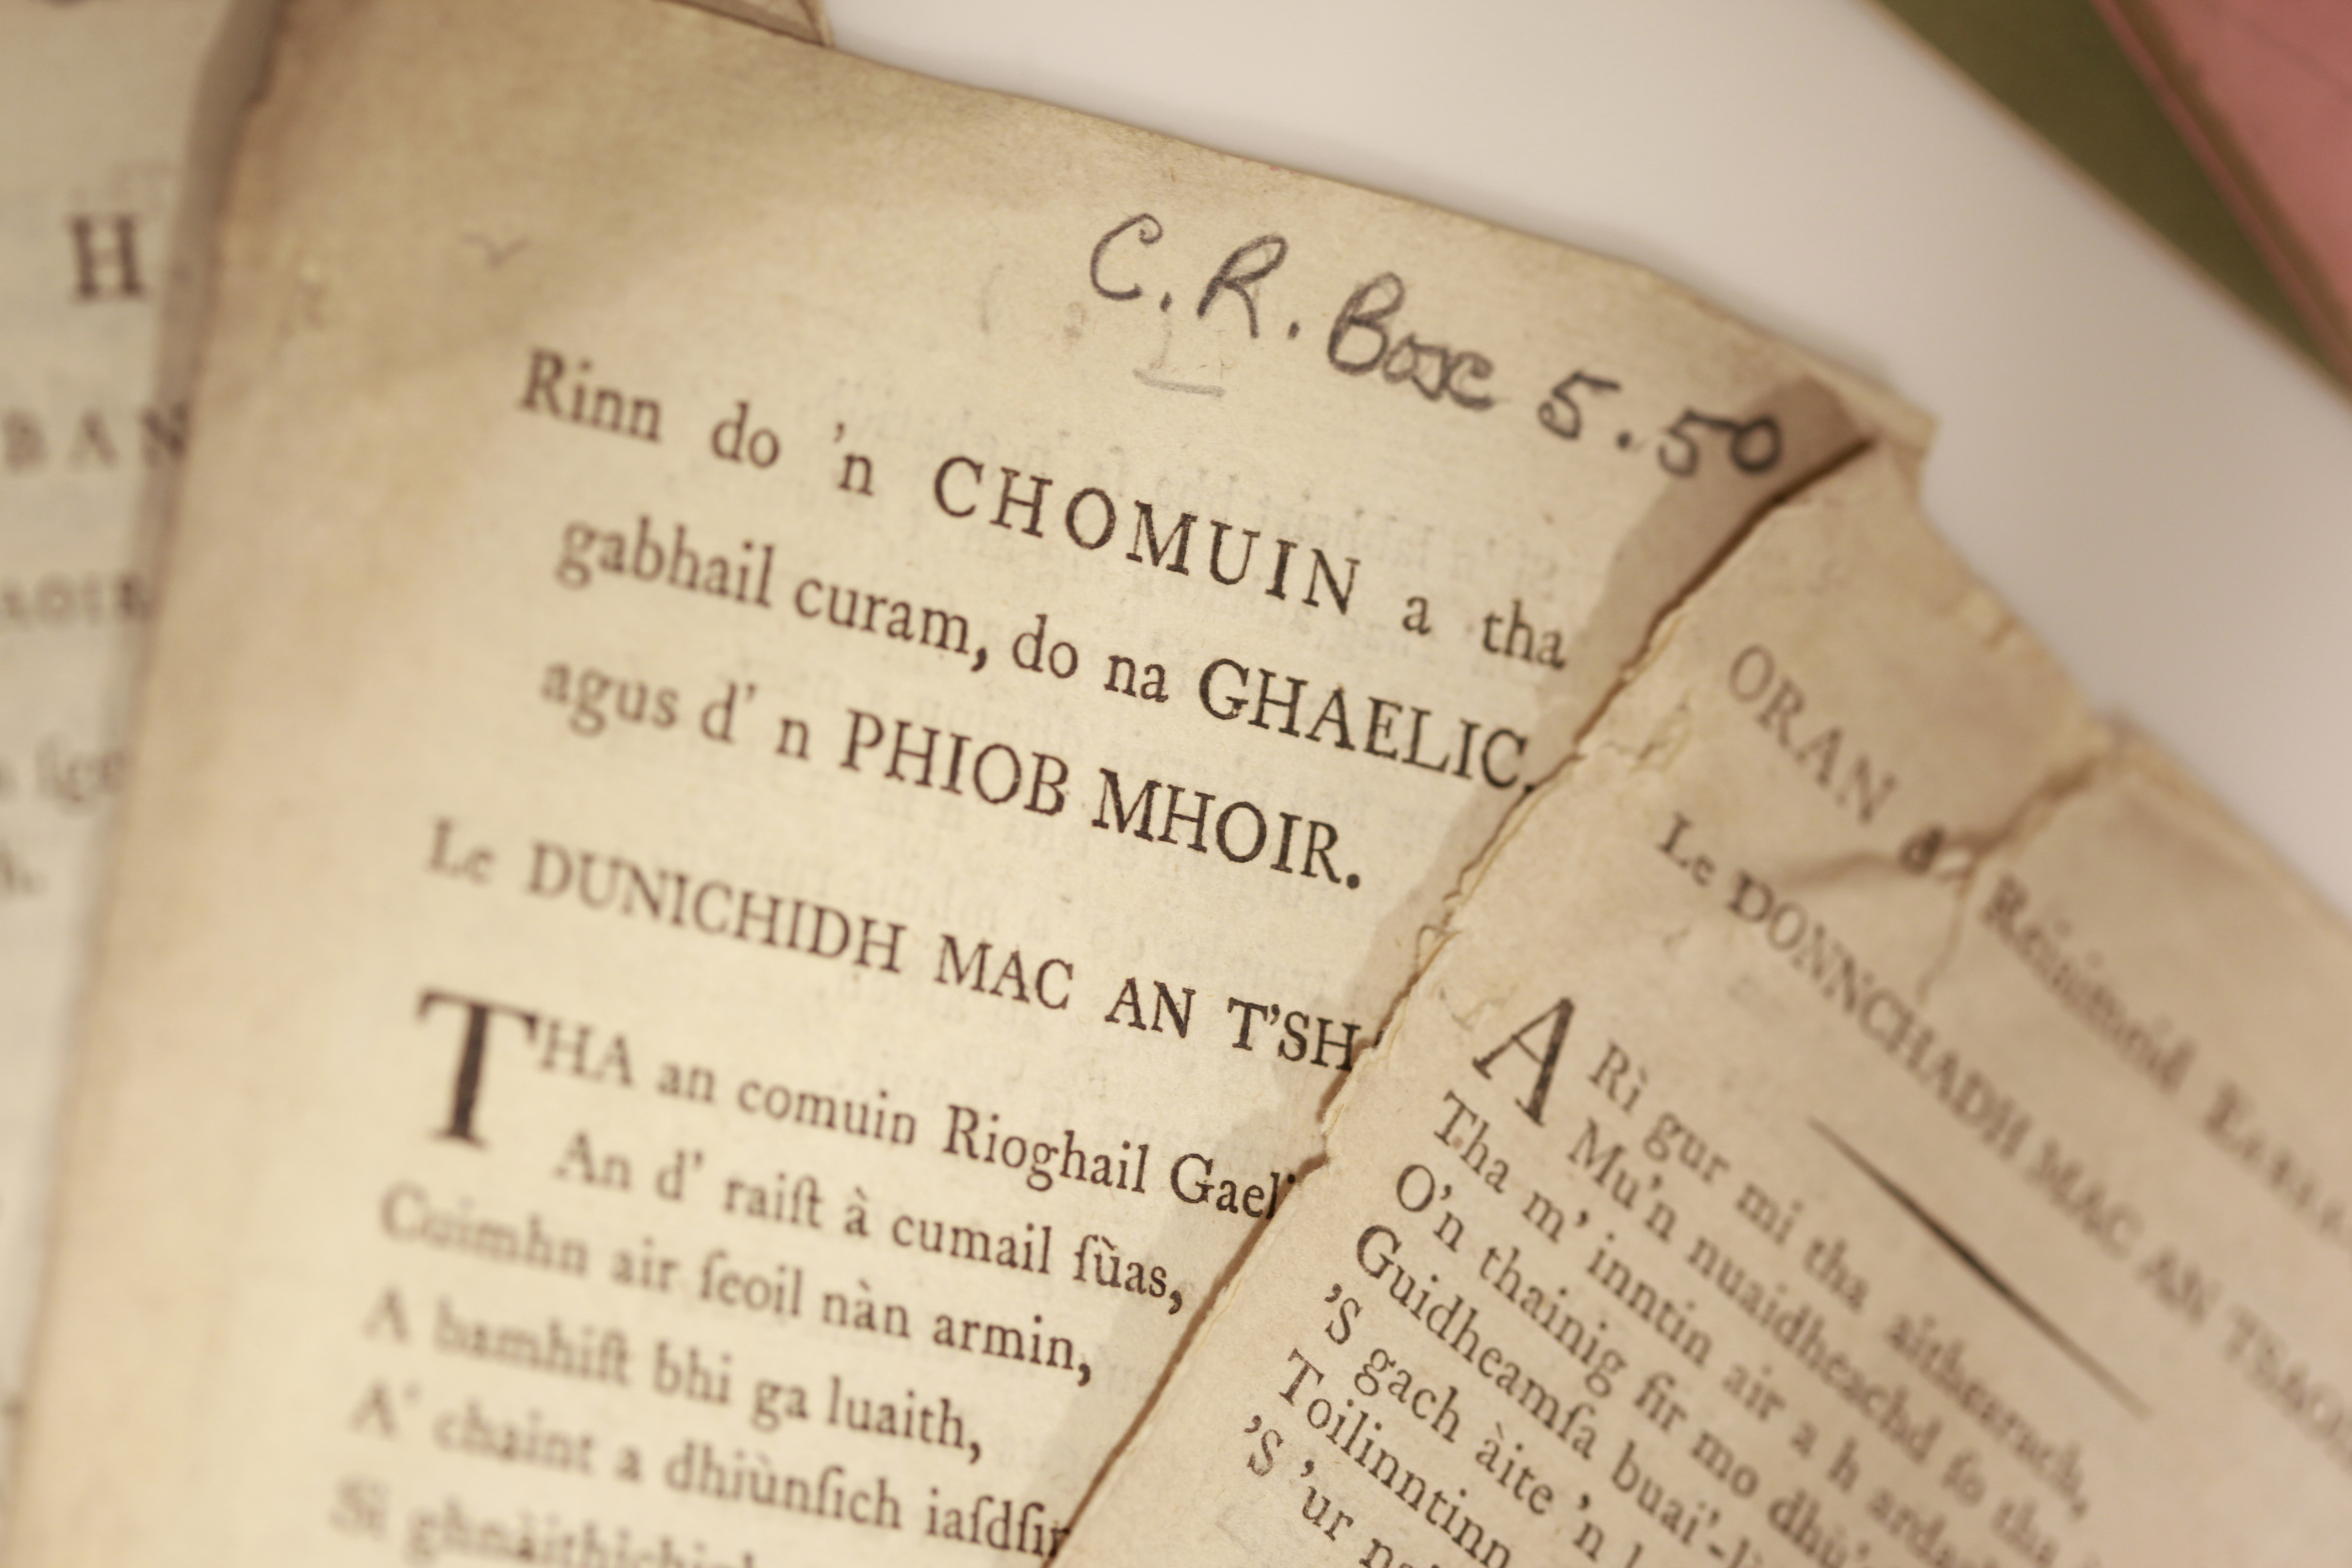 H
BAN
C.R. Box 5.50
Rinn do 'n CHOMUIN a tha
gabhail curam, do na GHAELIC,
agus d' n PHIOB MHOIR.
Le DUNICHIDH MAC AN T'SH
THA an comuin Rioghail Gaeli
An d' raiſt à cumail ſùas,
Cuimhn air ſeoil nàn armin,
A bamhiſt bhi ga luaith,
A' chaint a dhiùnſich iaſdſin
Si
ORAN d' Reisimeid
Le DONNCHADH MAC AN TSAOI
A Rì gur mi tha aithearach,
Mu'n nuaidheachd ſo tha
Tha m' inntin air a h arda
O'n thainig fir mo dhù'
Guidheamſa buai'-l
'S gach àite 'n
Toilinntinn
'S 'ur